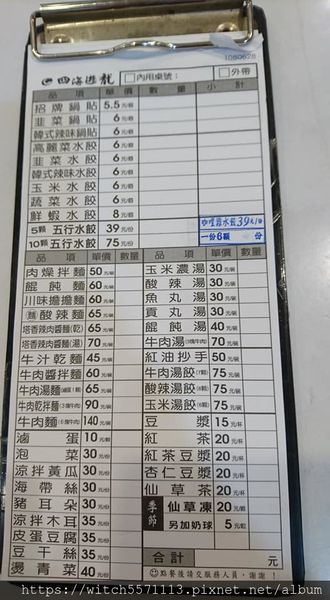 1080628
四海遊龍 □內用桌號： □外帶
品項 單價 數量 小計
招牌鍋貼 5.5元/個
韭菜鍋貼 6元/個
韓式辣味鍋貼 6元/個
高麗菜水餃 6元/個
韭菜水餃 6元/個
韓式辣味水餃 6元/個
玉米水餃 6元/個
蔬菜水餃 6元/個
鮮蝦水餃 8元/個
5顆 五行水餃 39元/份
10顆 五行水餃 75元/份
39元/份
一份6顆 份
品項 單價 數量
肉燥拌麵 50元/碗
餛飩麵 60元/碗
川味擔擔麵 60元/碗
酸辣麵 65元/碗
塔香辣肉醬麵(乾) 65元/碗
塔香辣肉醬麵(湯) 70元/碗
牛汁乾麵 45元/碗
牛肉醬拌麵 60元/碗
牛肉湯麵 65元/碗
牛肉乾拌麵 90元/碗
牛肉麵 140元/碗
滷蛋 10元/顆
泡菜 30元/份
涼拌黃瓜 30元/份
海帶絲 30元/份
豬耳朵 30元/份
涼拌木耳 35元/份
皮蛋豆腐 35元/份
豆干絲 35元/份
燙青菜 40元/份
品項 單價 數量
玉米濃湯 30元/碗
酸辣湯 30元/碗
魚丸湯 30元/碗
貢丸湯 30元/碗
餛飩湯 40元/碗
牛肉湯 70元/碗
紅油抄手 50元/碗
牛肉湯餃 75元/碗
酸辣湯餃 65元/碗
玉米湯餃 65元/碗
豆漿 15元/杯
紅茶 20元/杯
紅茶豆漿 20元/杯
杏仁豆漿 20元/杯
仙草茶 20元/杯
季節 仙草凍 20元/杯
另加奶球 5元/粒
合計 元
點餐後請交服務人員，謝謝！
https://witch5571113.pixnet.net/album